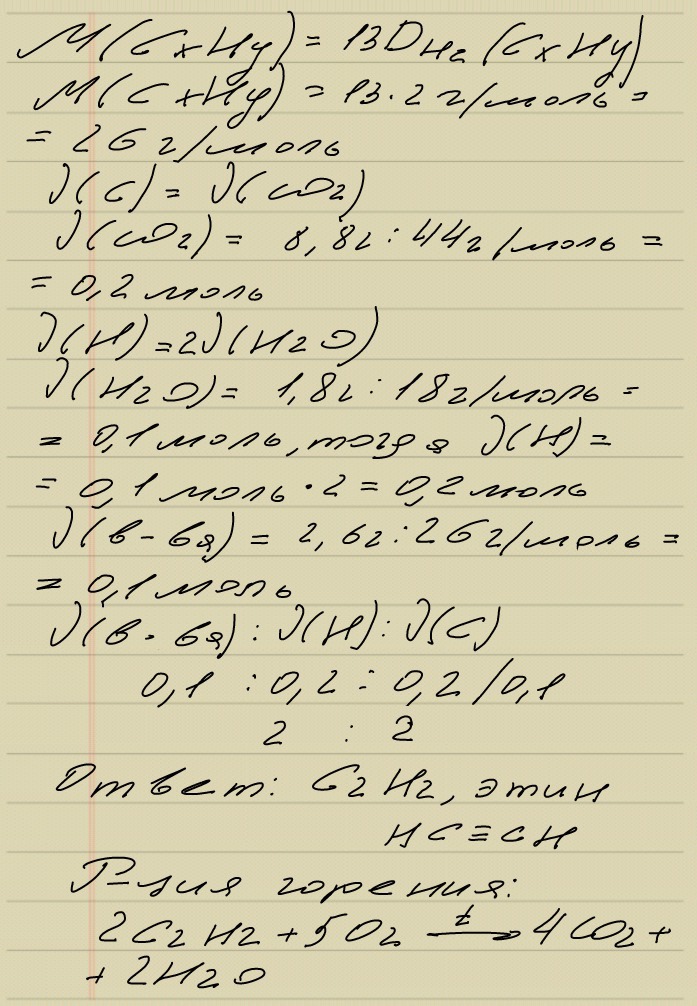 M(CxHy) = 13D_H2(CxHy)
M(CxHy) = 13·2 г/моль =
= 26 г/моль
ν(C) = ν(CO2)
ν(CO2) = 8,8г : 44г/моль =
= 0,2 моль
ν(H) = 2ν(H2O)
ν(H2O) = 1,8г : 18г/моль =
= 0,1 моль, тогда ν(H) =
= 0,1 моль · 2 = 0,2 моль
ν(в-ва) = 2,6г : 26г/моль =
= 0,1 моль
ν(в-ва) : ν(H) : ν(C)
0,1 : 0,2 : 0,2 /0,1
2 : 2
Ответ: C2H2, этин
HC≡CH
Р-ция горения:
2C2H2 + 5O2 —t→ 4CO2 +
+ 2H2O